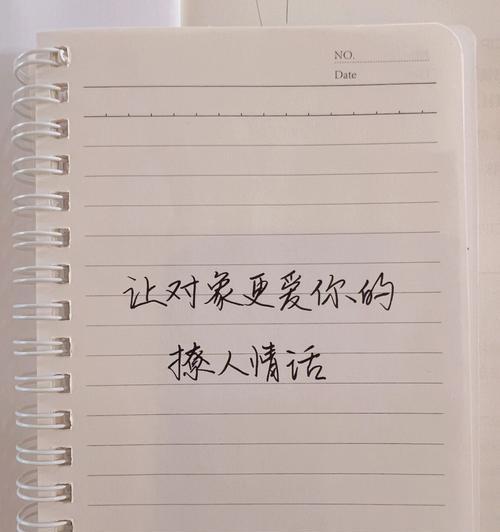 NO.
Date
让对象更爱你的
撩人情话